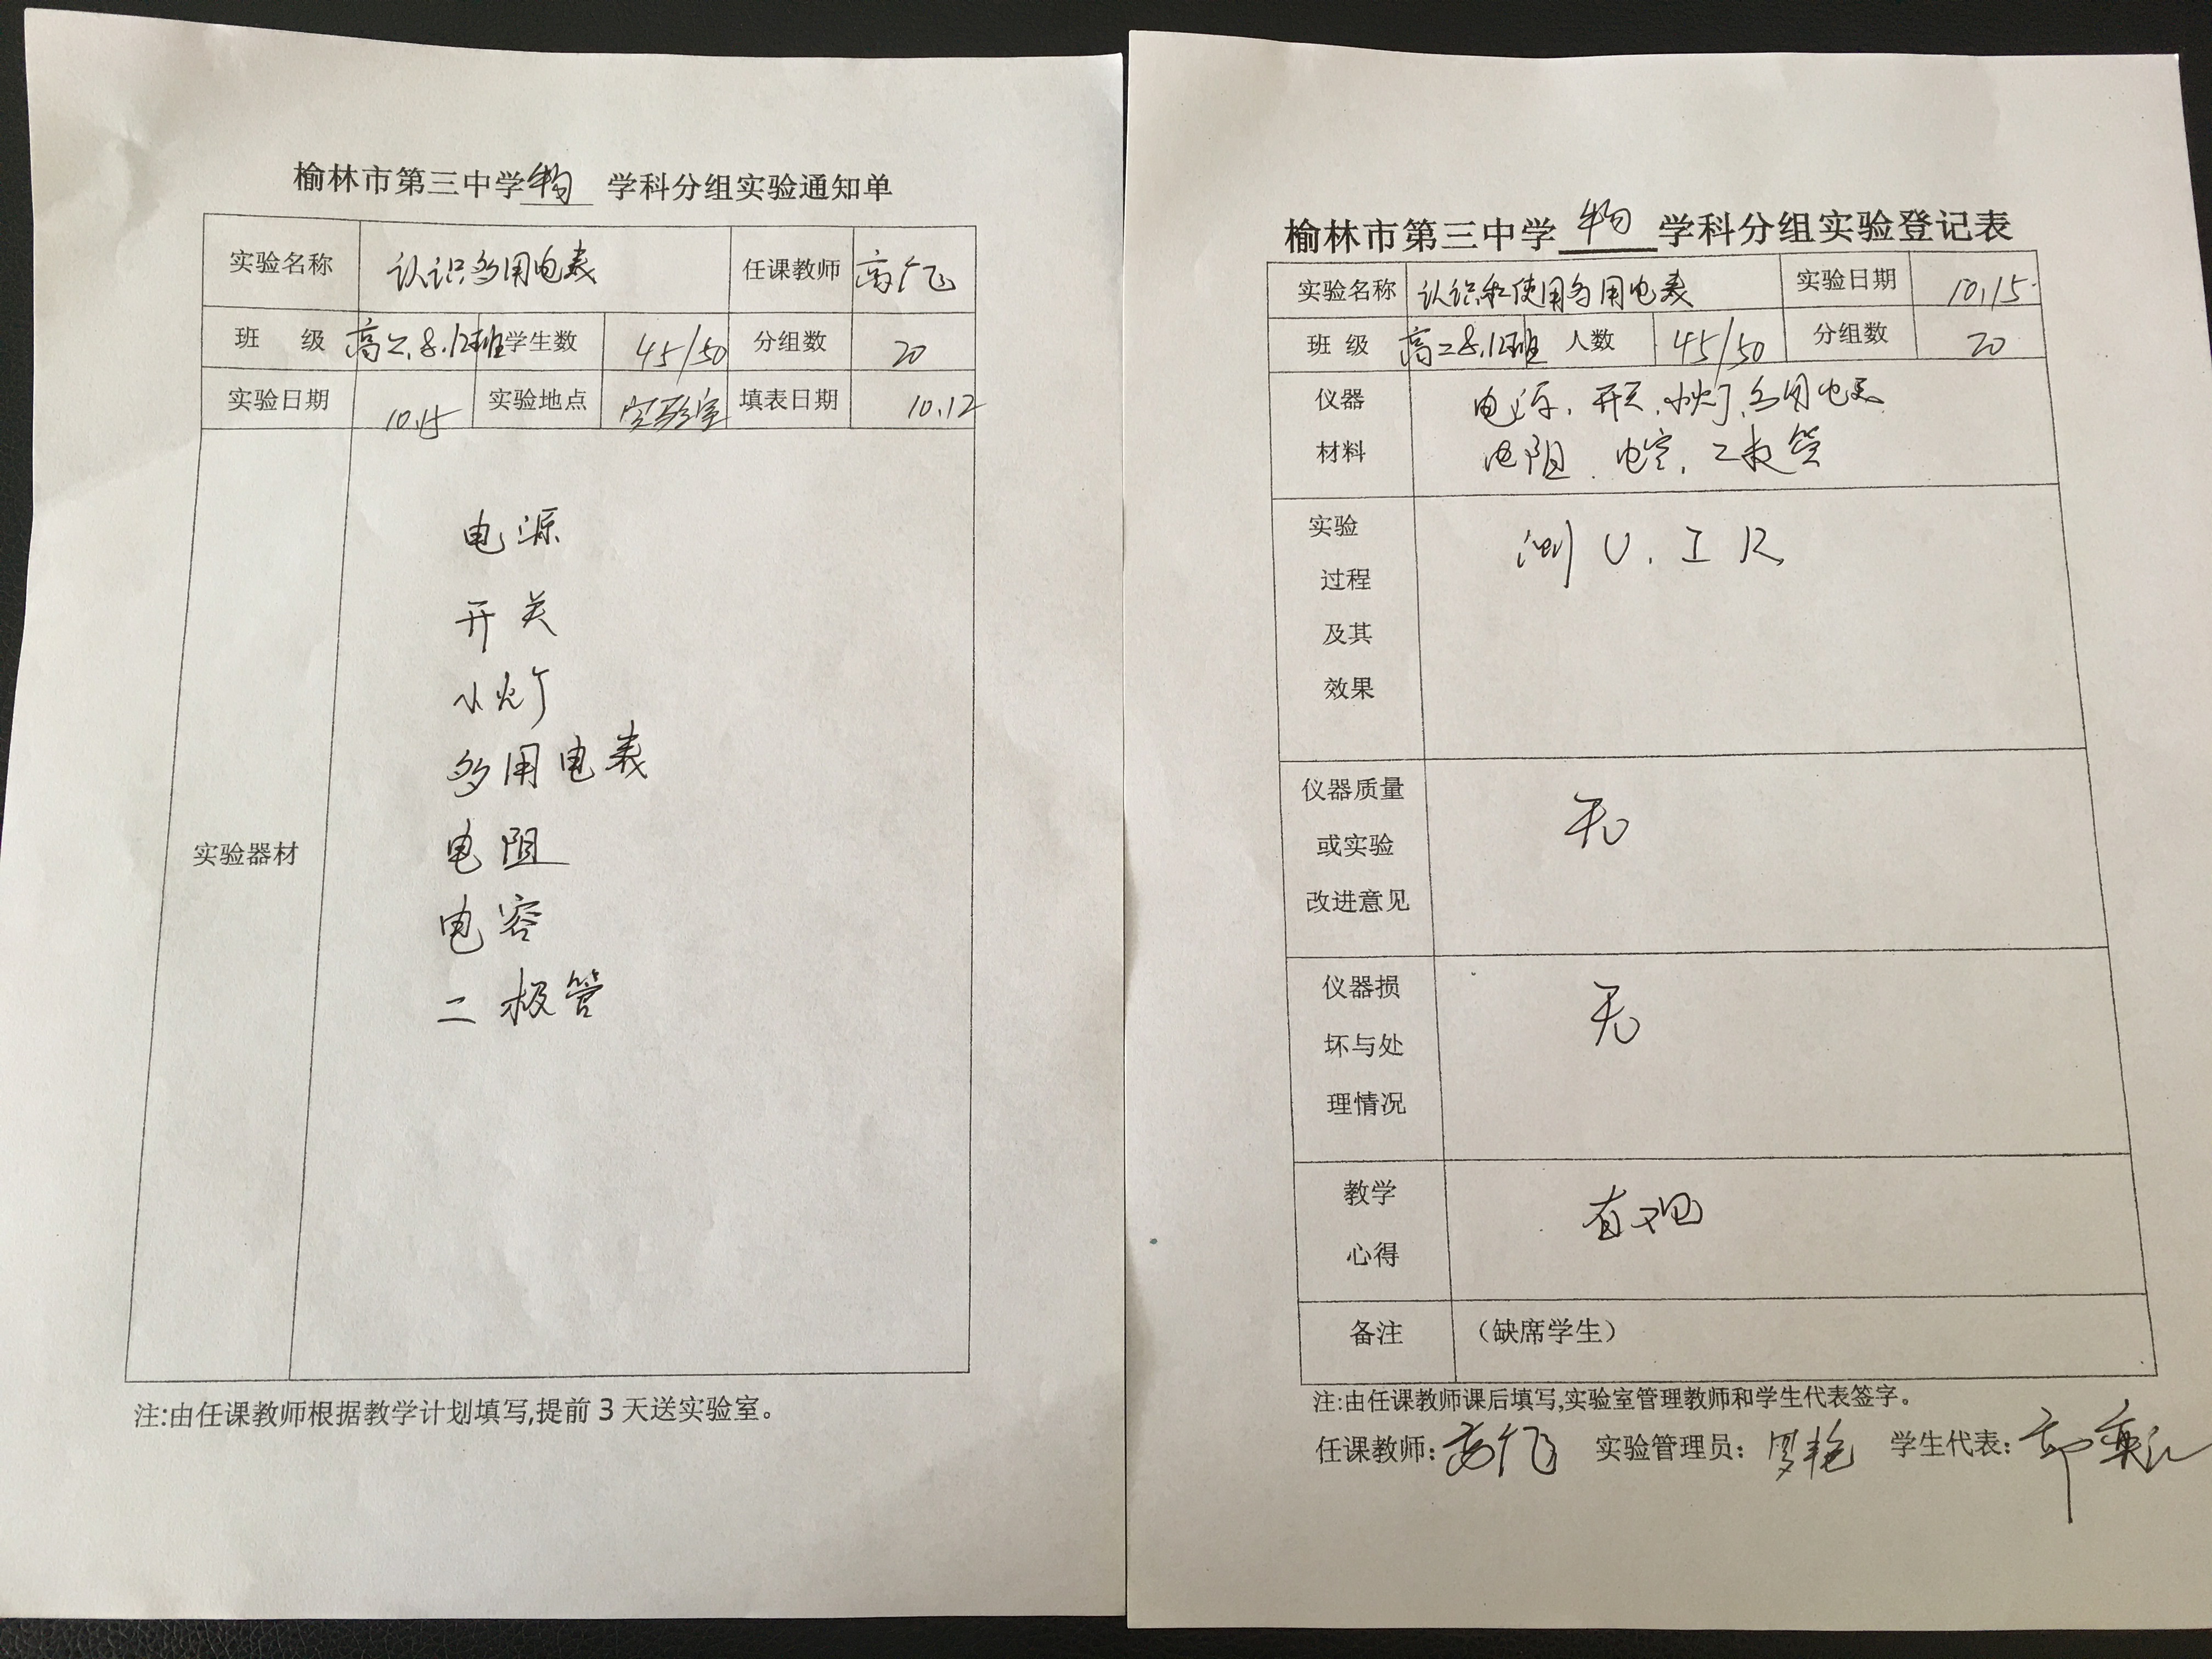 榆林市第三中学 物 学科分组实验通知单
实验名称 认识多用电表 任课教师 高飞
班 级 高二8.12班 学生数 45/50 分组数 20
实验日期 10.15 实验地点 实验室 填表日期 10.12
实验器材
电源
开关
小灯
多用电表
电阻
电容
二极管
注:由任课教师根据教学计划填写,提前3天送实验室。
榆林市第三中学 物 学科分组实验登记表
实验名称 认识和使用多用电表 实验日期 10.15
班 级 高二8.12班 人数 45/50 分组数 20
仪器 电源.开关.小灯.多用电表
材料 电阻.电容.二极管
实验 测U.I R
过程
及其
效果
仪器质量 无
或实验
改进意见
仪器损 无
坏与处
理情况
教学 直观
心得
备注 （缺席学生）
注:由任课教师课后填写,实验室管理教师和学生代表签字。
任课教师: 高飞 实验管理员: 罗艳 学生代表: